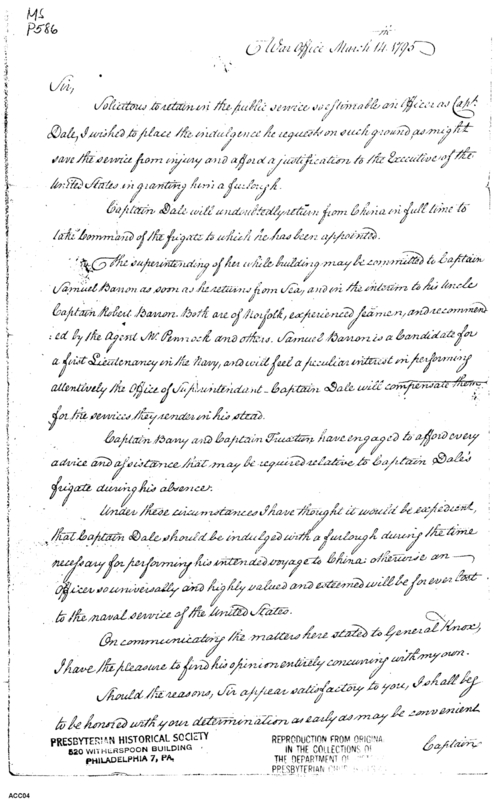 MS
P586
War Office March 14th 1795
Sir,
Solicitous to retain in the public service so estimable an Officer as Capt.
Dale, I wished to place the indulgence he requests on such ground as might
save the service from injury and afford a justification to the Executive of the
United States in granting him a furlough.
Captain Dale will undoubtedly return from China in full time to
take Command of the frigate to which he has been appointed.
The superintending of her while building may be committed to Captain
Samuel Barron as soon as he returns from Sea, and in the interim to his Uncle
Captain Robert Barron. Both are of Norfolk, experienced Seamen, and recommend
:ed by the Agent Mr. Pennock and others. Samuel Barron is a Candidate for
a first Lieutenancy in the Navy, and will feel a peculiar interest in performing
attentively the Office of Superintendant - Captain Dale will compensate them
for the services they render in his stead.
Captain Barry and Captain Truxton have engaged to afford every
advice and assistance that may be required relative to Captain Dale's
frigate during his absence.
Under these circumstances I have thought it would be expedient,
that Captain Dale should be indulged with a furlough during the time
necessary for performing his intended voyage to China: otherwise an
Officer so universally and highly valued and esteemed will be for ever lost
to the naval service of the United States.
On communicating the matters here stated to General Knox,
I have the pleasure to find his opinion entirely concurring with my own.
Should the reasons, Sir appear satisfactory to you, I shall beg
to be honored with your determination as early as may be convenient
Captain
PRESBYTERIAN HISTORICAL SOCIETY
520 WITHERSPOON BUILDING
PHILADELPHIA 7, PA,
REPRODUCTION FROM ORIGINA
IN THE COLLECTIONS OF
THE DEPARTMENT OF
PRESBYTERIAN
ACC04